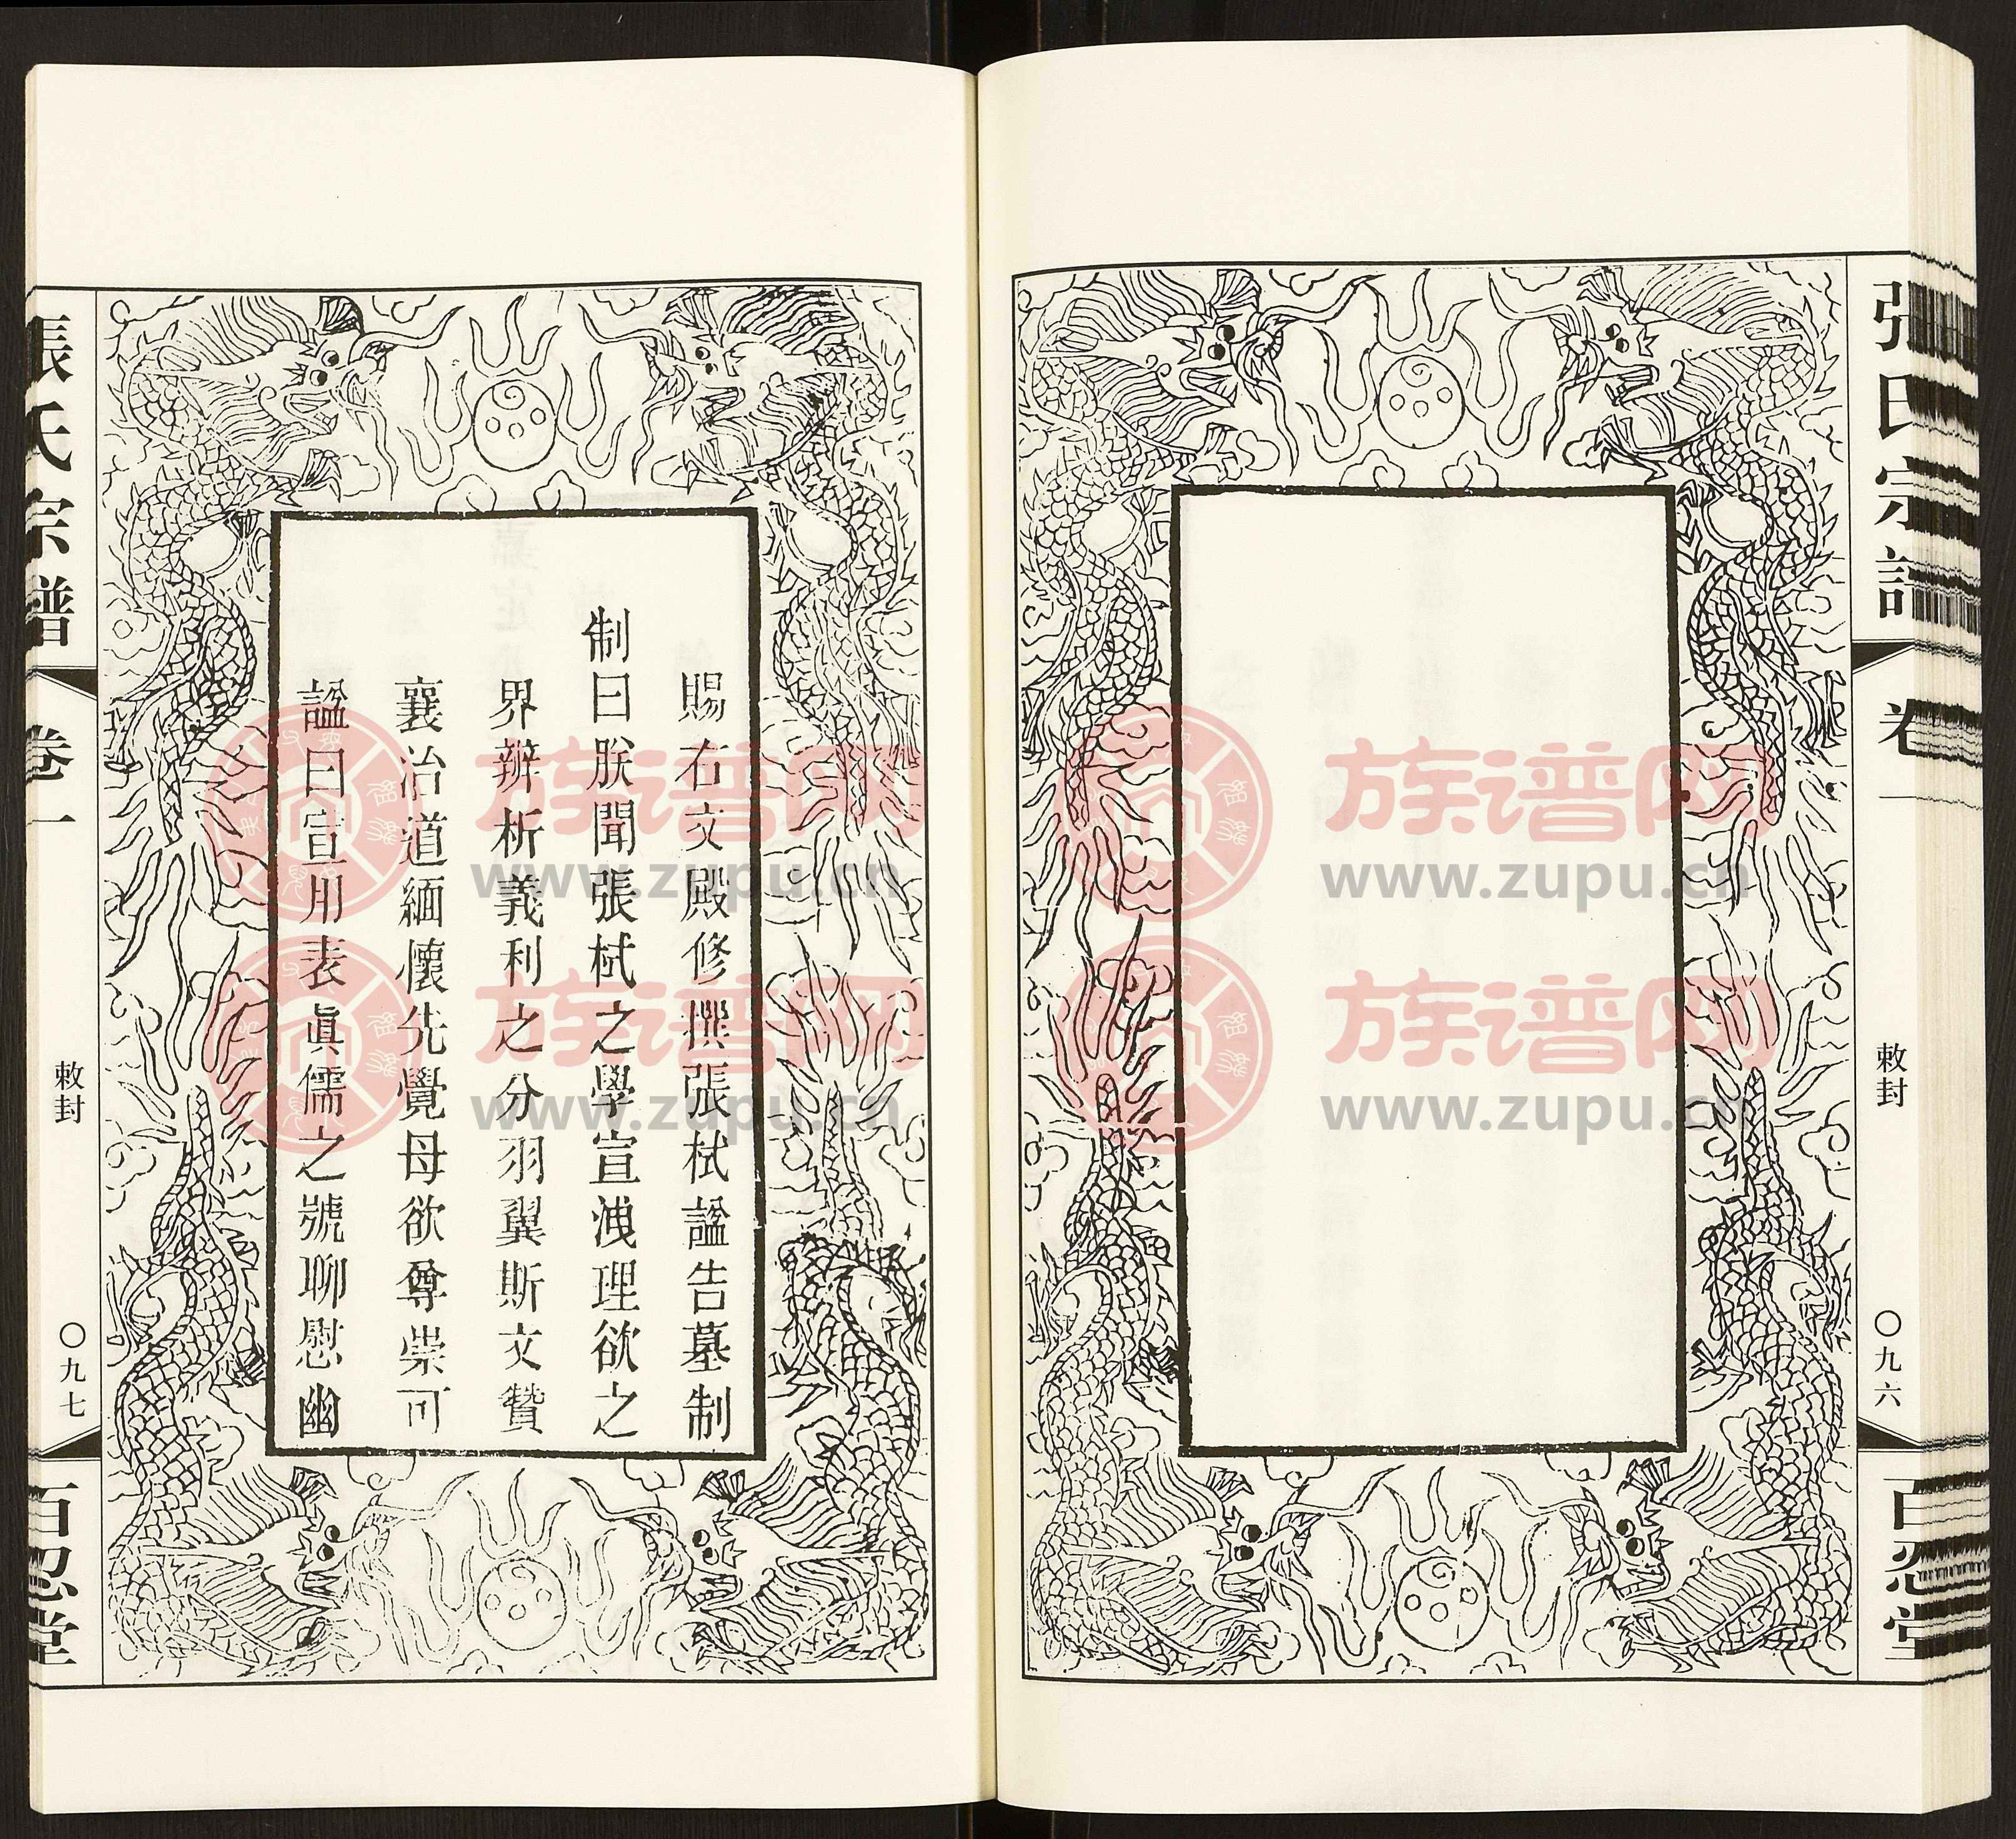 張氏宗譜
卷一
敕封
〇九六
百忍堂
賜右文殿修撰張栻諡告墓制
制曰朕聞張栻之學宣洩理欲之
界辨析義利之分羽翼斯文贊
襄治道緬懷先覺母欲尊崇可
諡曰宣用表眞儒之號聊慰幽
張氏宗譜
卷一
敕封
〇九七
百忍堂
族谱网
www.zupu.cn
族谱网
www.zupu.cn
族谱网
www.zupu.cn
族谱网
www.zupu.cn